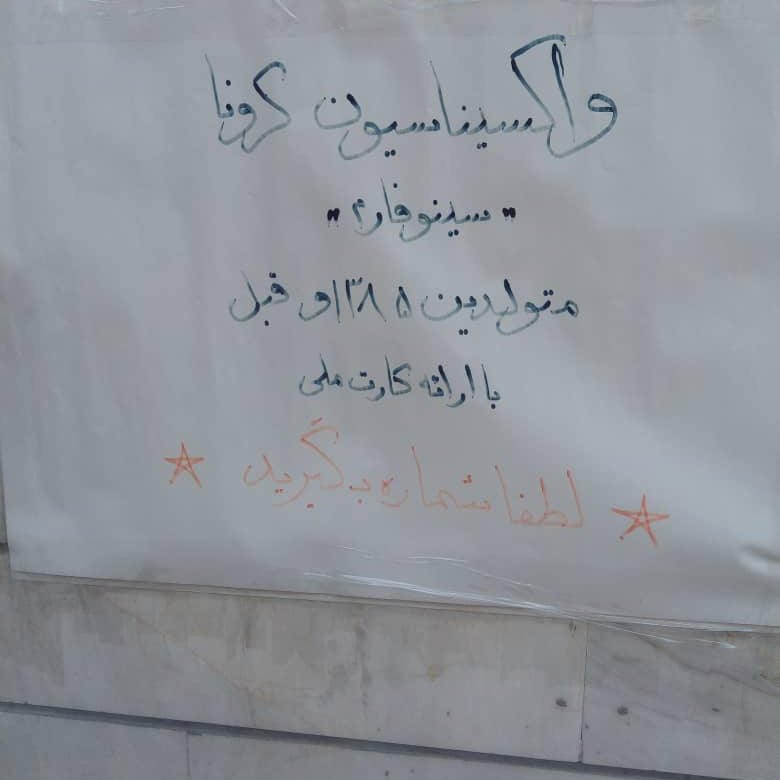 واکسیناسیون کرونا
"سینوفارم"
متولدین ۱۳۸۵ و قبل
با ارائه کارت ملی
لطفا شماره بگیرید